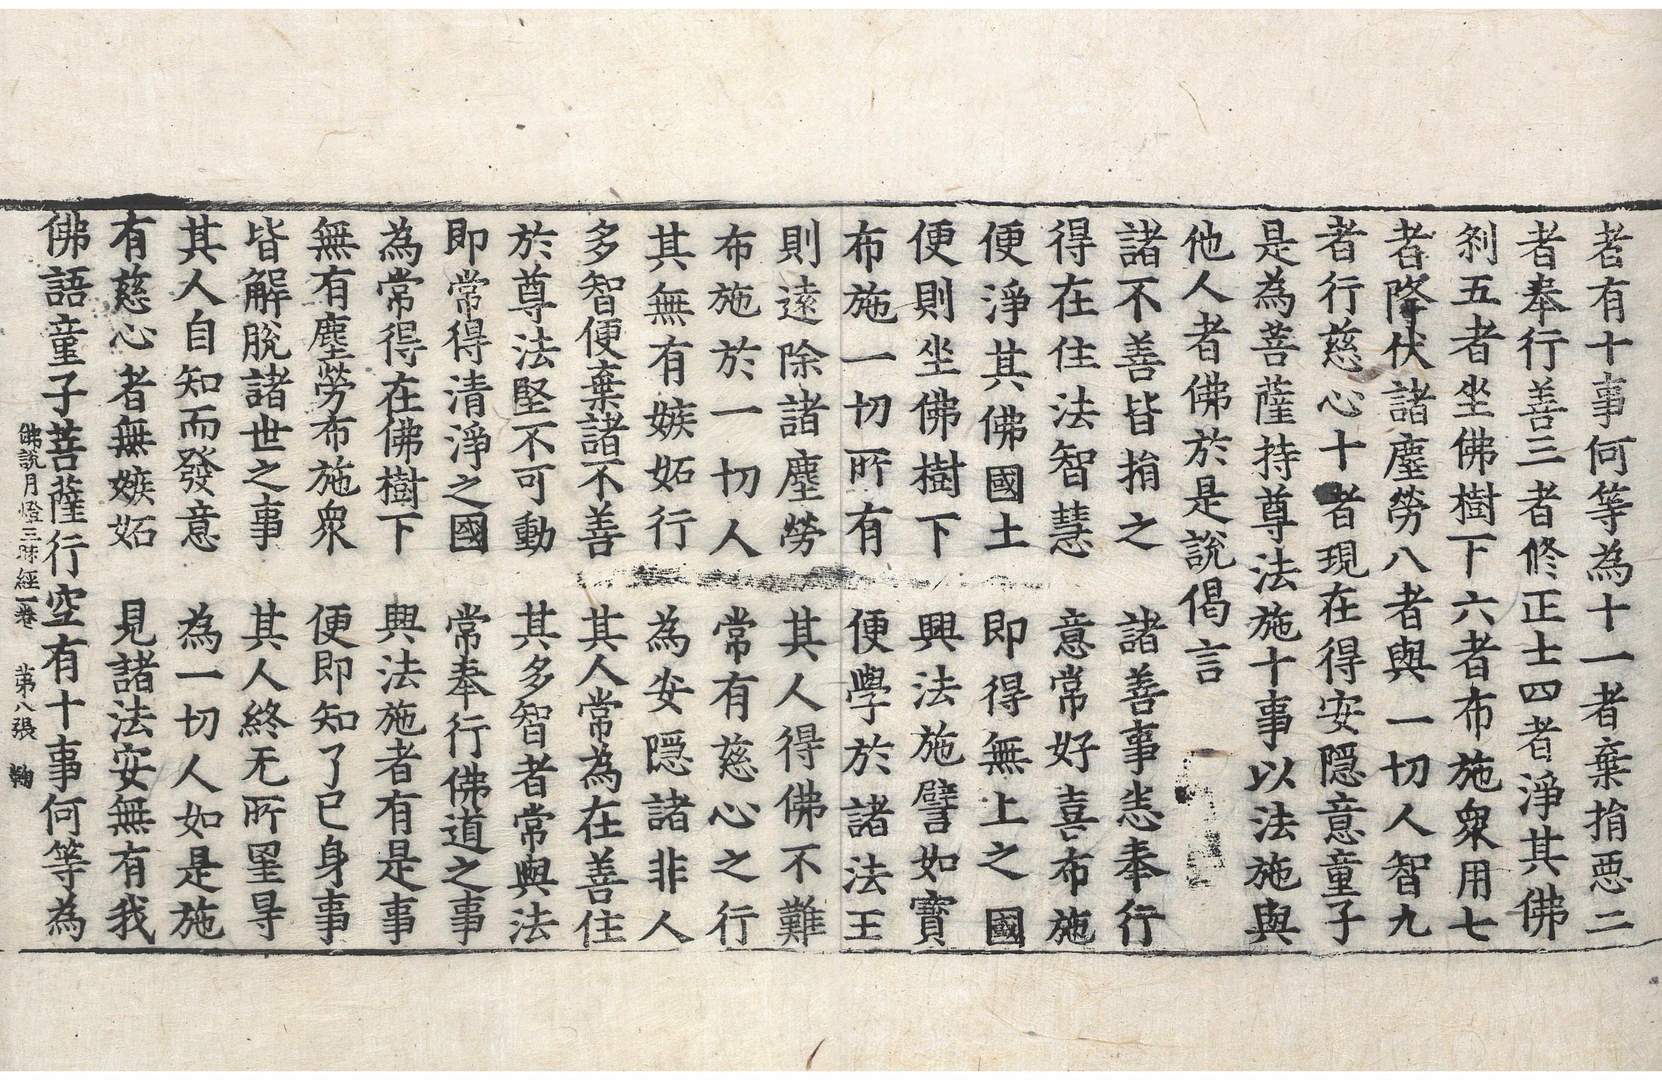 者有十事何等為十一者棄捐惡二
者奉行善三者修正士四者淨其佛
剎五者坐佛樹下六者布施衆用七
者降伏諸塵勞八者與一切人智九
者行慈心十者現在得安隱意童子
是為菩薩持尊法施十事以法施與
他人者佛於是說偈言
諸不善皆捐之　諸善事悉奉行
得在住法智慧　意常好喜布施
便淨其佛國土　即得無上之國
便則坐佛樹下　興法施譬如寶
布施一切所有　便學於諸法王
則遠除諸塵勞　其人得佛不難
布施於一切人　常有慈心之行
其無有嫉妬行　為安隱諸非人
多智便棄諸不善　其人常為在善住
於尊法堅不可動　其多智者常與法
即常得清淨之國　常奉行佛道之事
為常得在佛樹下　興法施者有是事
無有塵勞布施衆　便即知了已身事
皆解脫諸世之事　其人終无所罣㝵
其人自知而發意　為一切人如是施
有慈心者無嫉妬　見諸法安無有我
佛語童子菩薩行空有十事何等為
佛說月燈三昧經一卷　苐八張　鞠